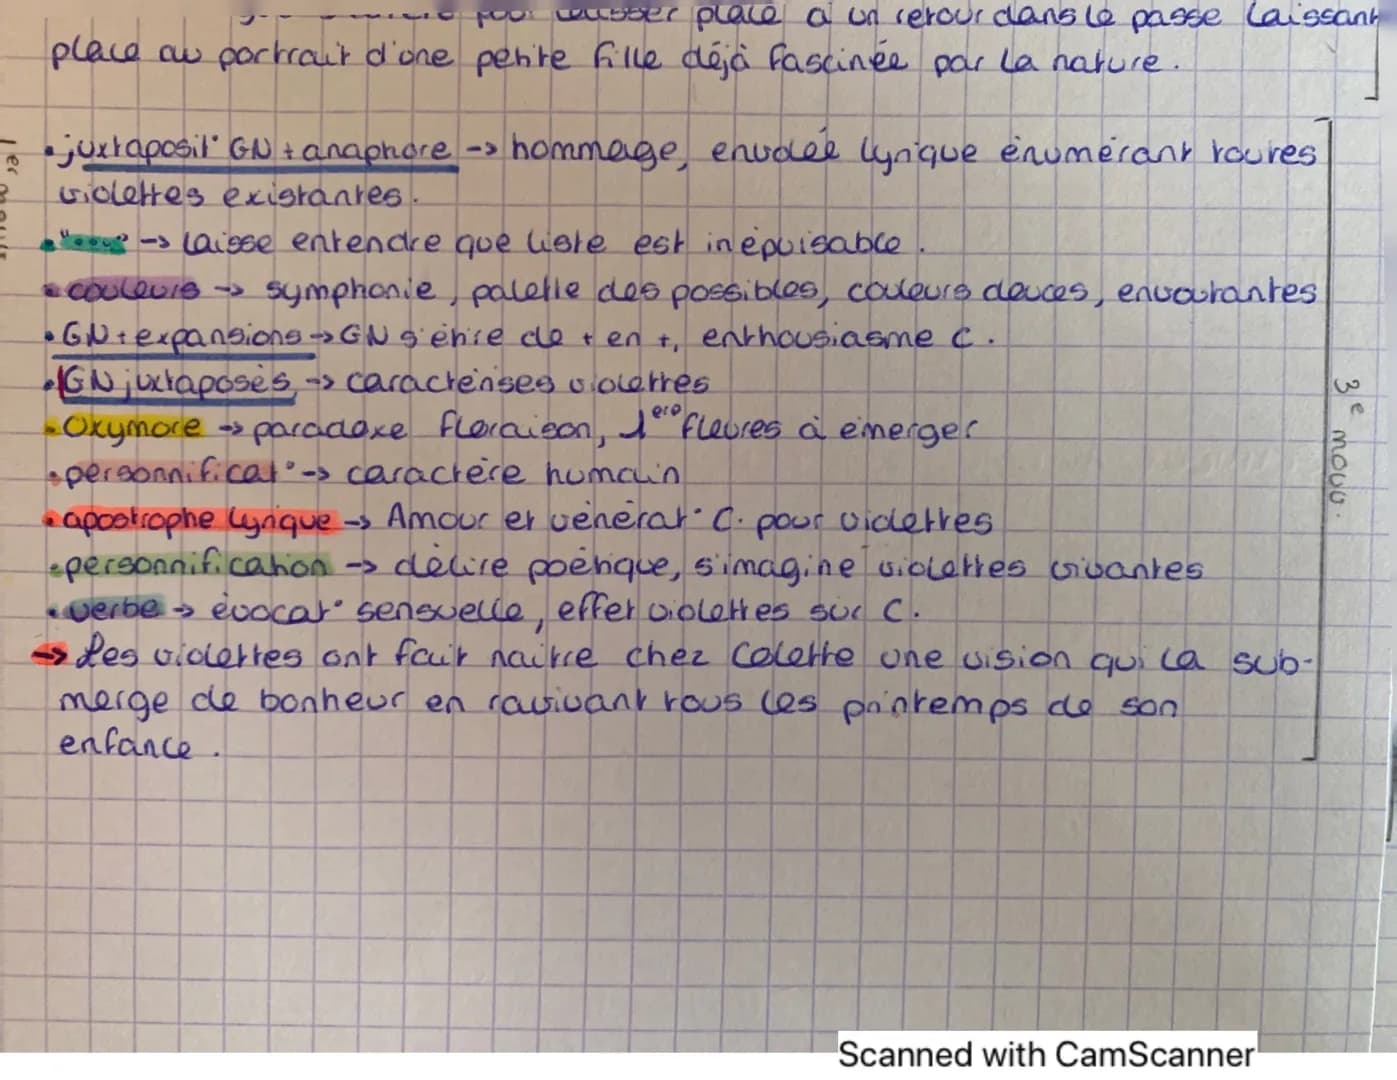 pour laisser place à un retour dans le passe laissant
place au portrait d'une petite fille déjà fascinée par la nature.
• juxtaposit° GN + anaphore -> hommage, envolée lyrique énumérant toutes
violettes existantes.
• "..." -> laisse entendre que liste est inépuisable.
• couleurs -> symphonie, palette des possibles, couleurs douces, envoutantes
• GN + expansions -> GN s'étire de + en +, enthousiasme C.
• GN juxtaposés -> caractérises violettes
• Oxymore -> paradoxe floraison, 1ere fleures à émerger
• personnificat° -> caractère humain
• apostrophe lyrique -> Amour et vénérat° C. pour violettes
• personnification -> délire poétique, s'imagine violettes vivantes
• verbe -> évocat° sensuelle, effet violettes sur C.
-> Les violettes ont fait naitre chez Colette une vision qui la sub-
merge de bonheur en ravivant tous les printemps de son
enfance.
3e mouv.
Scanned with CamScanner